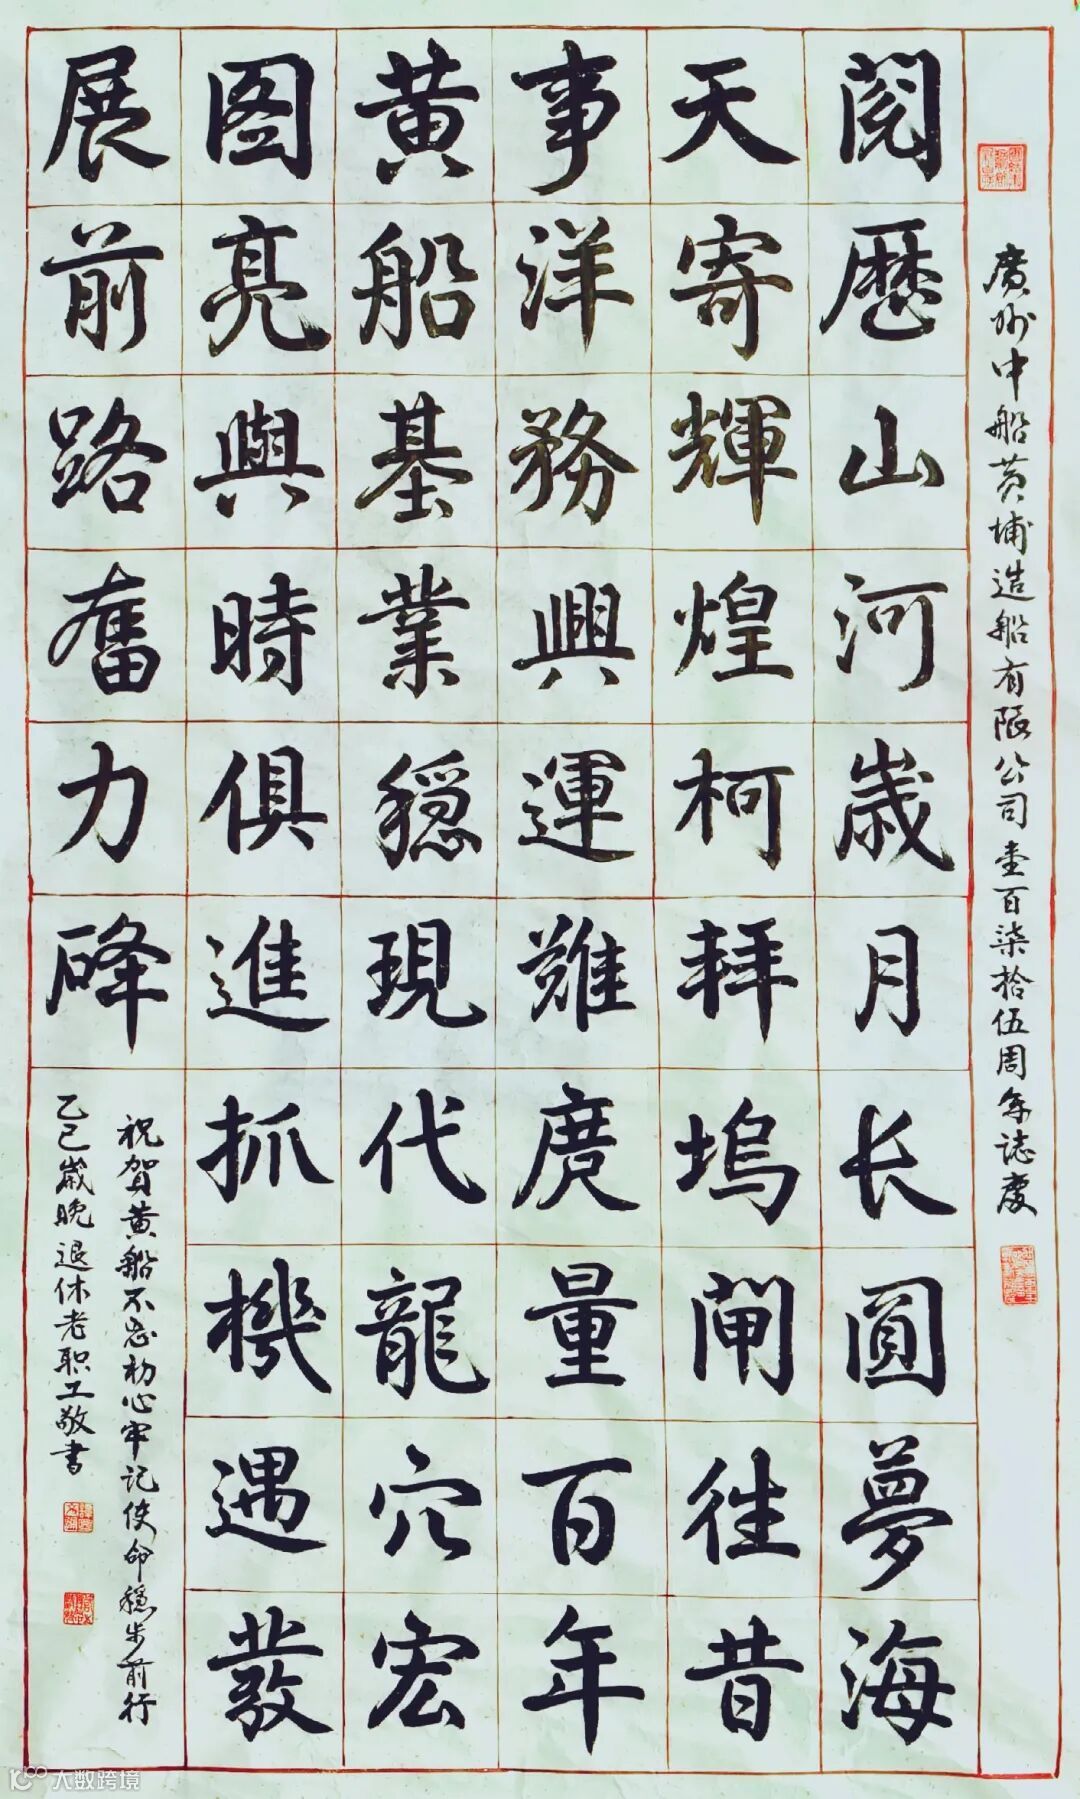 廣州中船黄埔造船有限公司壹百柒拾伍周年誌慶
閱歷山河歲月长圓夢海
天寄輝煌柯拜塢閘往昔
事洋務興運難度量百年
黄船基業穩現代龍穴宏
图亮與時俱進抓機遇發
展前路奮力
祝賀黄船不忘初心牢记使命穩步前行
乙巳歲晚退休老职工敬書
大数跨境